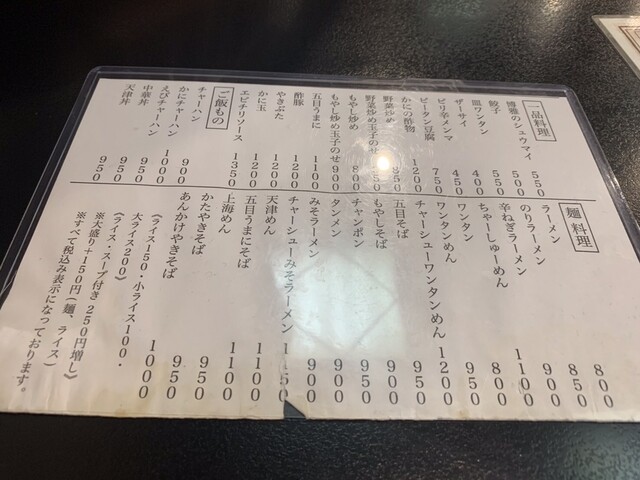 一品料理
博雅のシュウマイ 550
餃子 550
皿ワンタン 500
ザーサイ 400
ピリ辛メンマ 450
ピータン豆腐 750
かにの酢物 1200
野菜炒め 850
野菜炒め玉子のせ 950
もやし炒め 800
もやし炒め玉子のせ 900
五目うまに 1100
酢豚 1200
やきぶた 1200
かに玉 1200
エビチリソース 1350
ご飯もの
チャーハン 900
かにチャーハン 1000
えびチャーハン 950
中華丼 950
天津丼 950
麺料理
ラーメン 800
のりラーメン 850
辛ねぎラーメン 900
ちゃーしゅーめん 1100
ワンタン 800
ワンタンめん 950
チャーシューワンタンめん 1200
五目そば 950
もやしそば 900
チャンポン 950
タンメン 900
みそラーメン 900
チャーシューみそラーメン 1150
天津めん 1100
五目うまにそば 1100
上海めん 950
かたやきそば 950
あんかけやきそば 1000
(ライス150・小ライス100・
大ライス200)
(ライス・スープ付き 250円増し)
※大盛り+150円(麺、ライス)
※すべて税込み表示になっております。